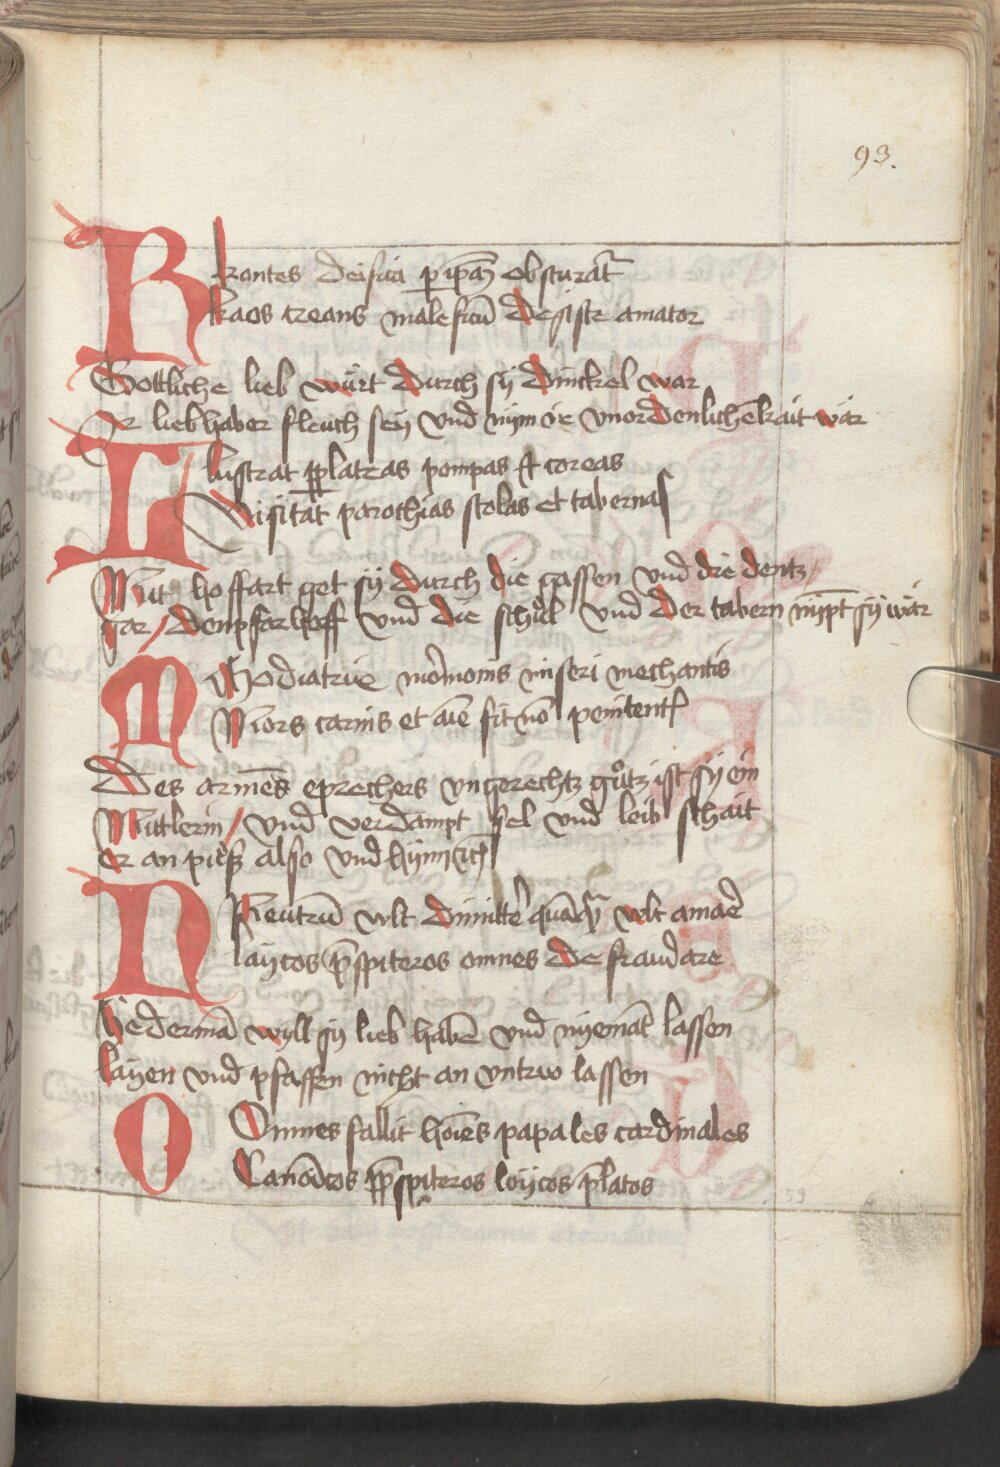 93.
karitas deifica p ip̄aꝫ obscurat᷑
kaos creans maleficū desiste amator
Gottliche lieb würt durch sy dinckel war
Der liebhaber fleuch sey vnd nym ir vnordenlichē kait war
L lustrat plateas pompas et coreas
Visitat parochias scolas et tabernas
Mit hoffart get sy durch die gassen vnd die dentz
gar / den pfarhoff vnd die schůl vnd der tabern nȳpt sy war
M Mediatrix miseri mechantis
Mors carnis et aīe sit nō penitent
Des armēs eprechers vngerechtz gůtz ist sy ein
Mittlerin / vnd verdampt sel vnd leib schait
er an pieß also vnd hynn
N Neutrū vlt dimitte᷑ quāqꝫ vlt amare
laycos p̄spiteros omnes defraudare
Yedermā wyll sy lieb habē vnd nyemāt lassen
layen vnd pfaffen nicht an vntrw lassen
O Omnes fallit hoīes papales cardinales
Canōicos p̄spiteros loycos p̄latos
59